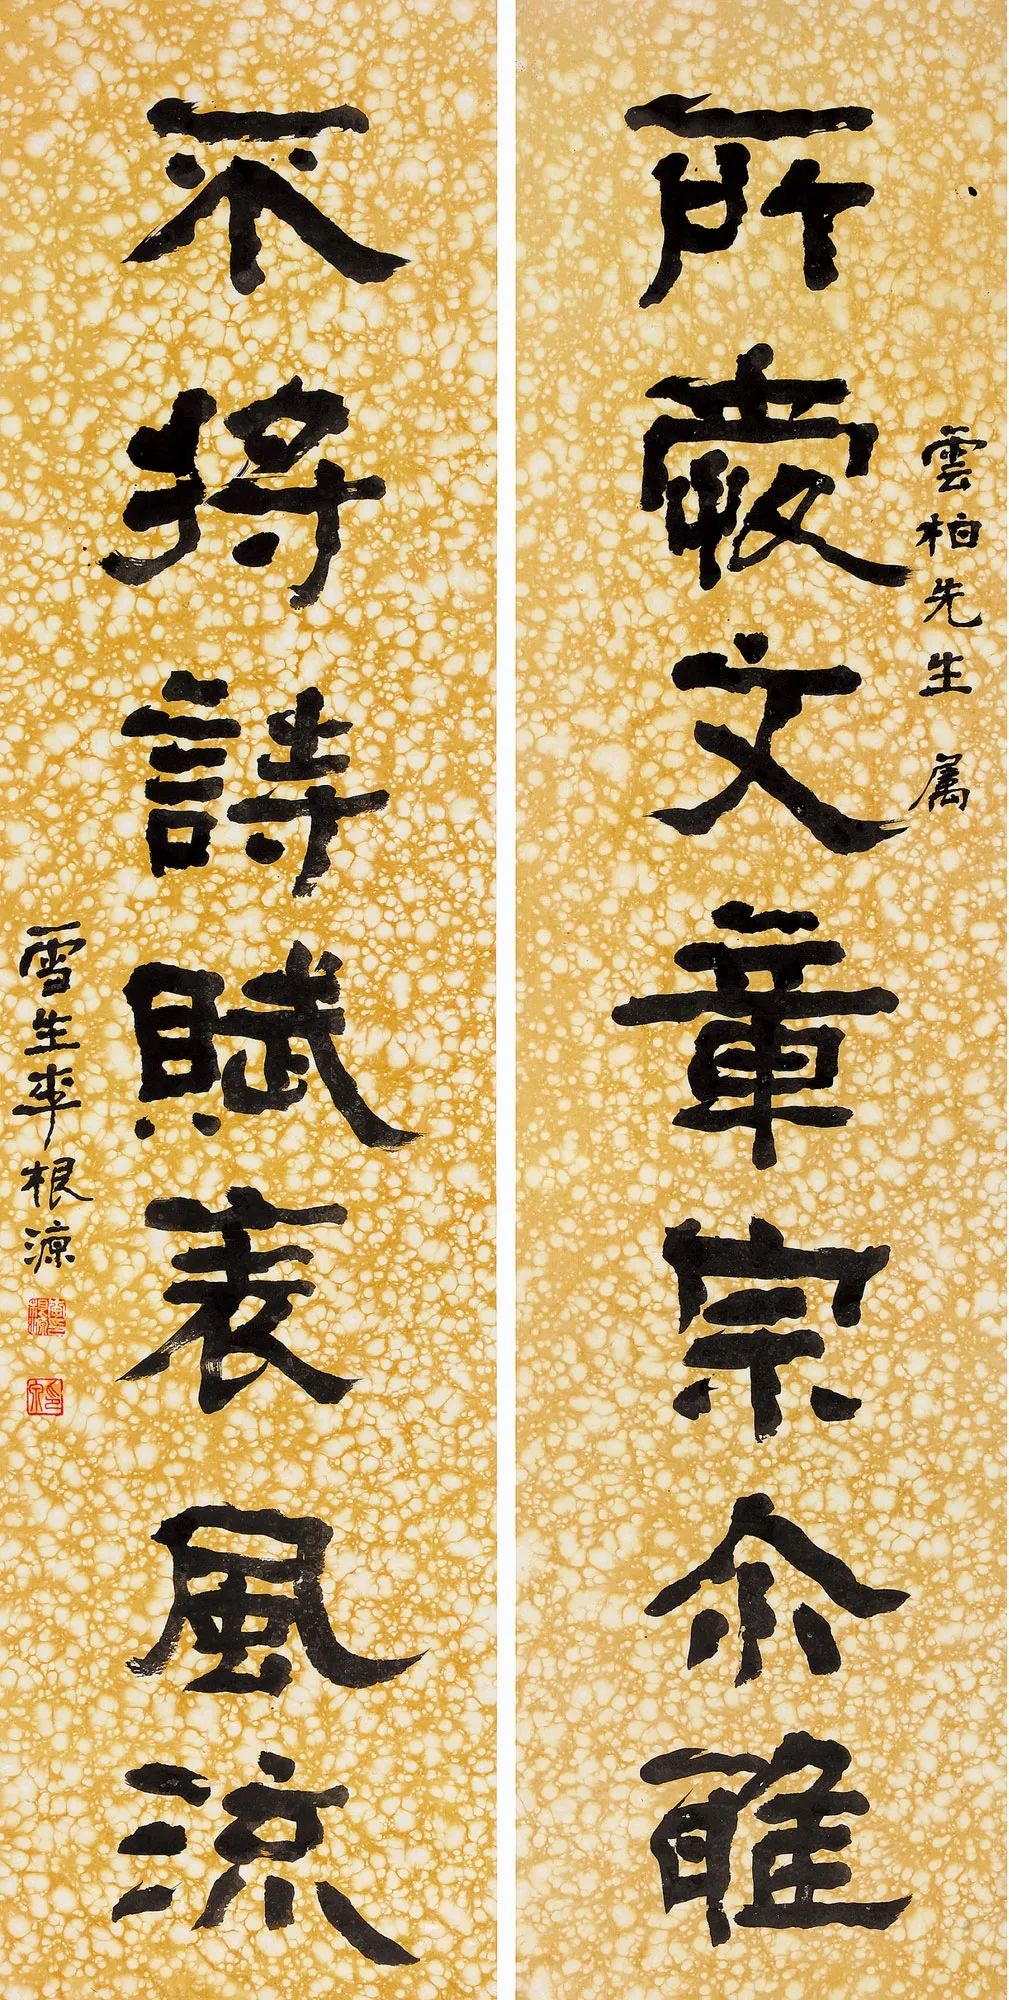 所文章宗尒雅
雲柏先生 属
不将詩賦表風流
雪生李根源